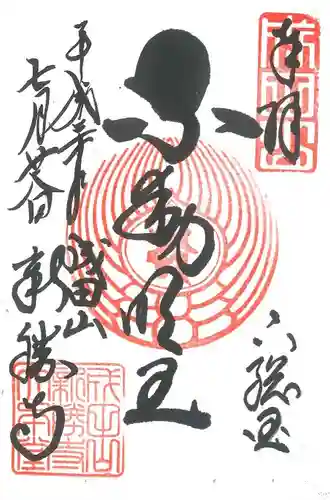 奉拝
下総国
不動明王
成田山
新勝寺
平成 年
七月廿 日
成田山
新勝寺
大本堂